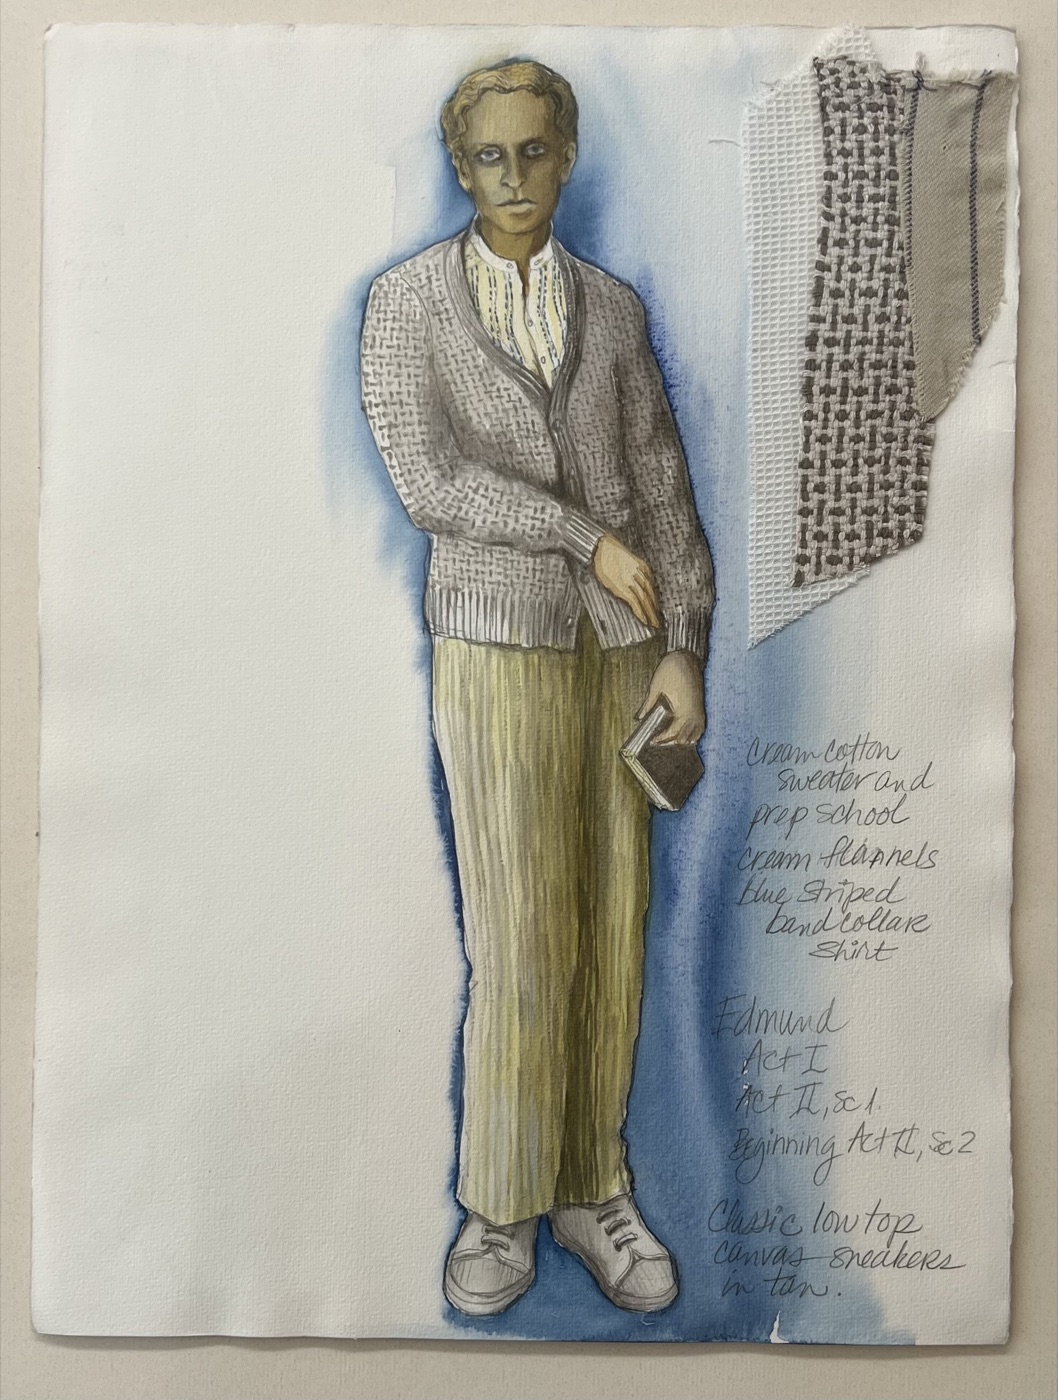 cream cotton
sweater and
prep school
cream flannels
blue striped
band collar
shirt
Edmund
Act I
Act II, sc 1.
Beginning Act II, sc 2
Classic low top
canvas sneakers
in tan.